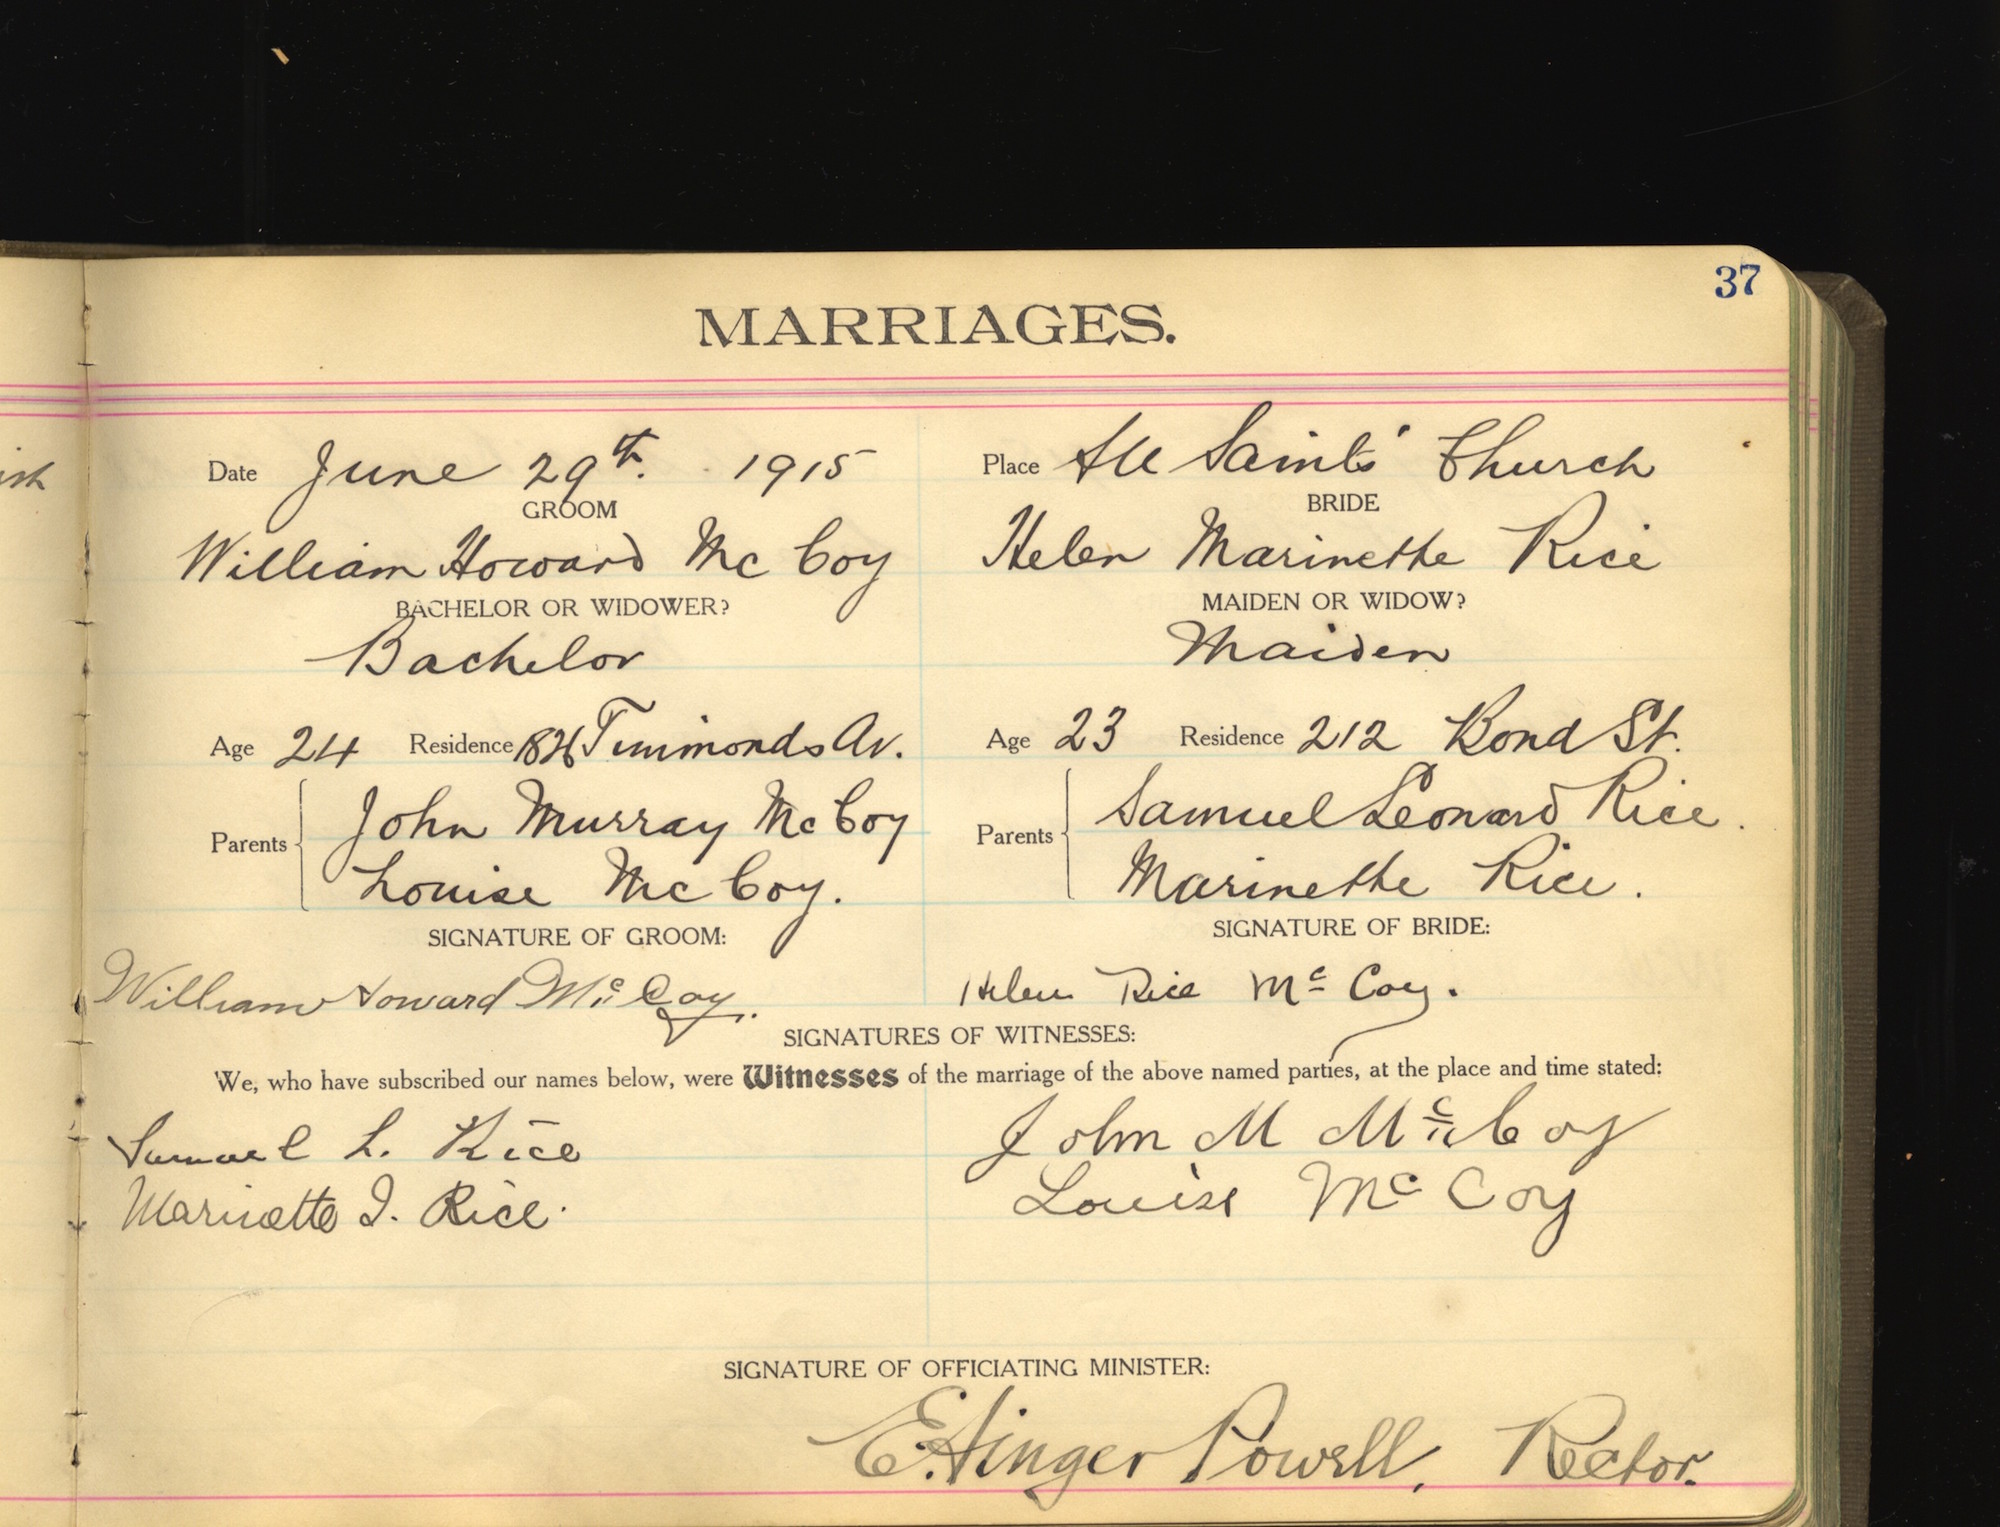 37
MARRIAGES.
Date June 29th. 1915
Place All Saints' Church
GROOM
BRIDE
William Howard Mc Coy
Helen Marinette Rice
BACHELOR OR WIDOWER?
MAIDEN OR WIDOW?
Bachelor
Maiden
Age 24 Residence Av.
Age 23 Residence 212 Bond St.
Parents
John Murray Mc Coy
Louise Mc Coy.
Parents
Samuel Leonard Rice.
Marinette Rice.
SIGNATURE OF GROOM:
SIGNATURE OF BRIDE:
William Howard Mc Coy.
Helen Rice Mc Coy.
SIGNATURES OF WITNESSES:
We, who have subscribed our names below, were Witnesses of the marriage of the above named parties, at the place and time stated:
Samuel L. Rice
John M McCoy
Marinette I. Rice.
Louise Mc Coy
SIGNATURE OF OFFICIATING MINISTER:
E. Ainger Powell, Rector.